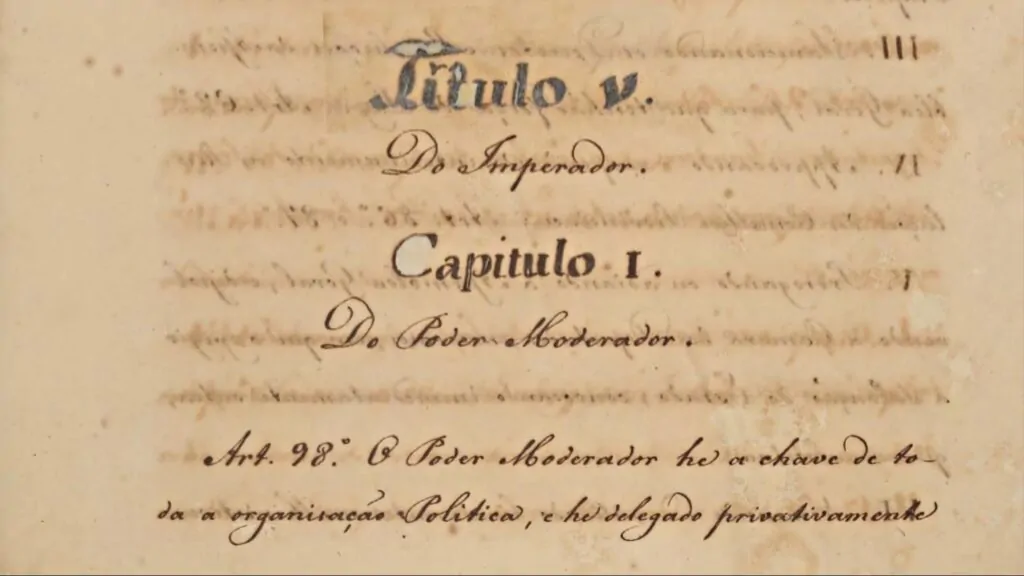 Título V.
Do Imperador.
Capitulo I.
Do Poder Moderador.
Art. 98.º O Poder Moderador he a chave de to-
da a organisação Politica, e he delegado privativamente